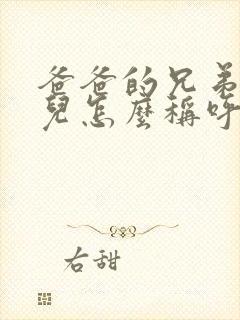 爸爸的兄弟
兒怎麼稱呼
右甜